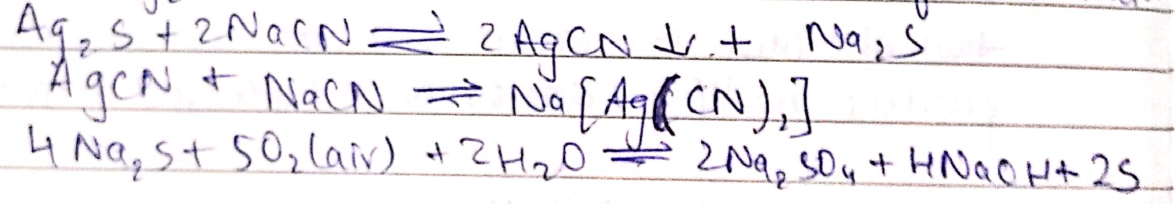 Ag₂S + 2NaCN ⇌ 2AgCN ↓ + Na₂S
AgCN + NaCN ⇌ Na[Ag(CN)₂]
4Na₂S + 5O₂(air) + 2H₂O ⇌ 2Na₂SO₄ + 4NaOH + 2S